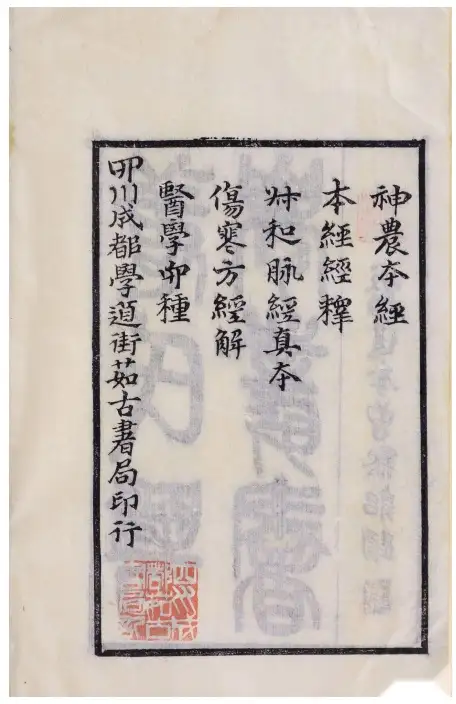 神農夲經
夲經經釋
尗和脉經真夲
傷寒方經解
醫學卯種
卯川成都學道街茹古書局印行